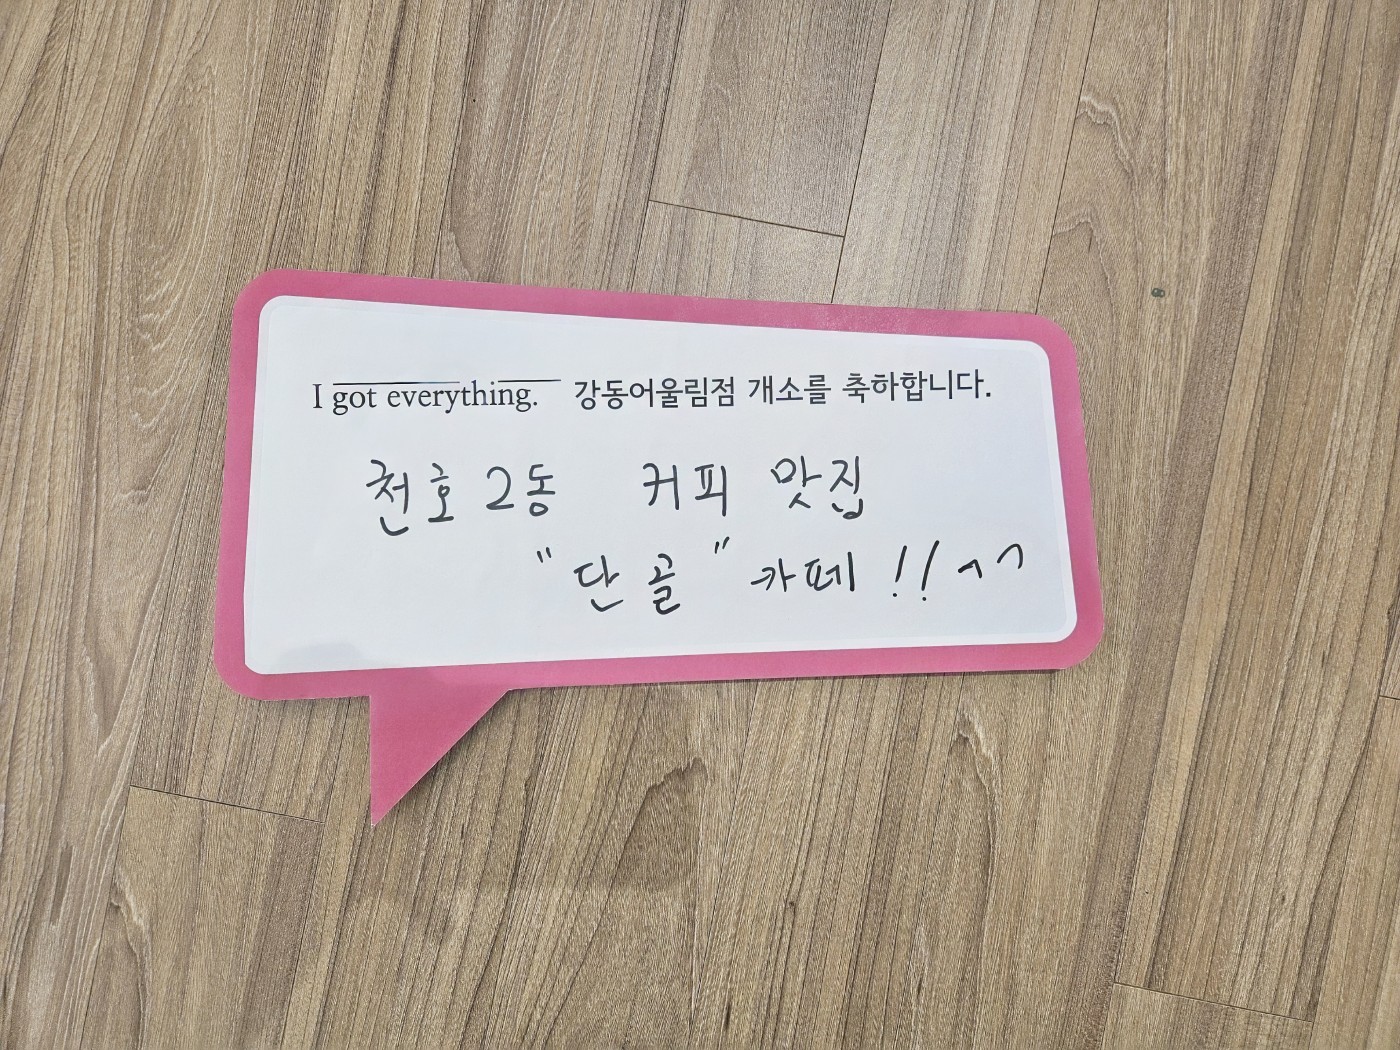 I got everything. 강동어울림점 개소를 축하합니다.
천호2동 커피 맛집
"단골"카페!! ^^